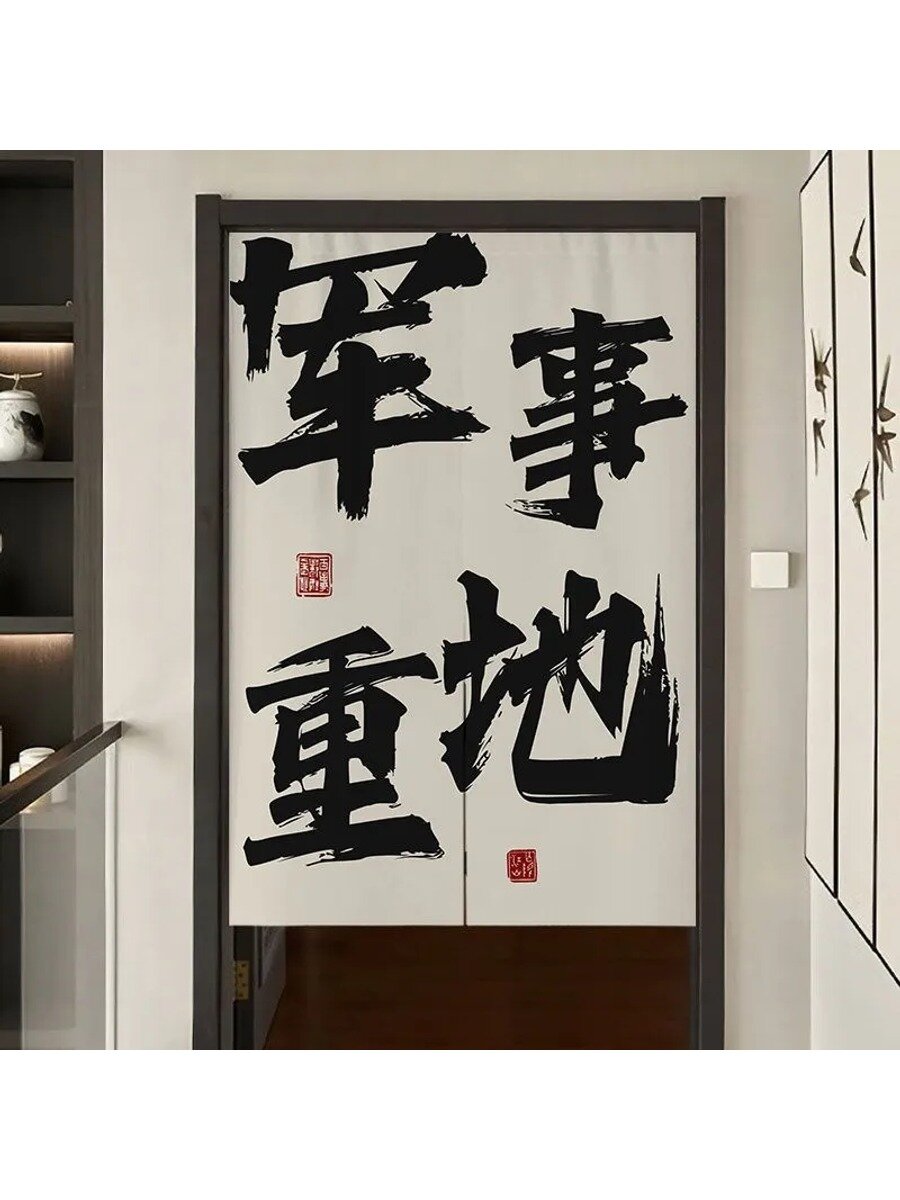 军事
重地